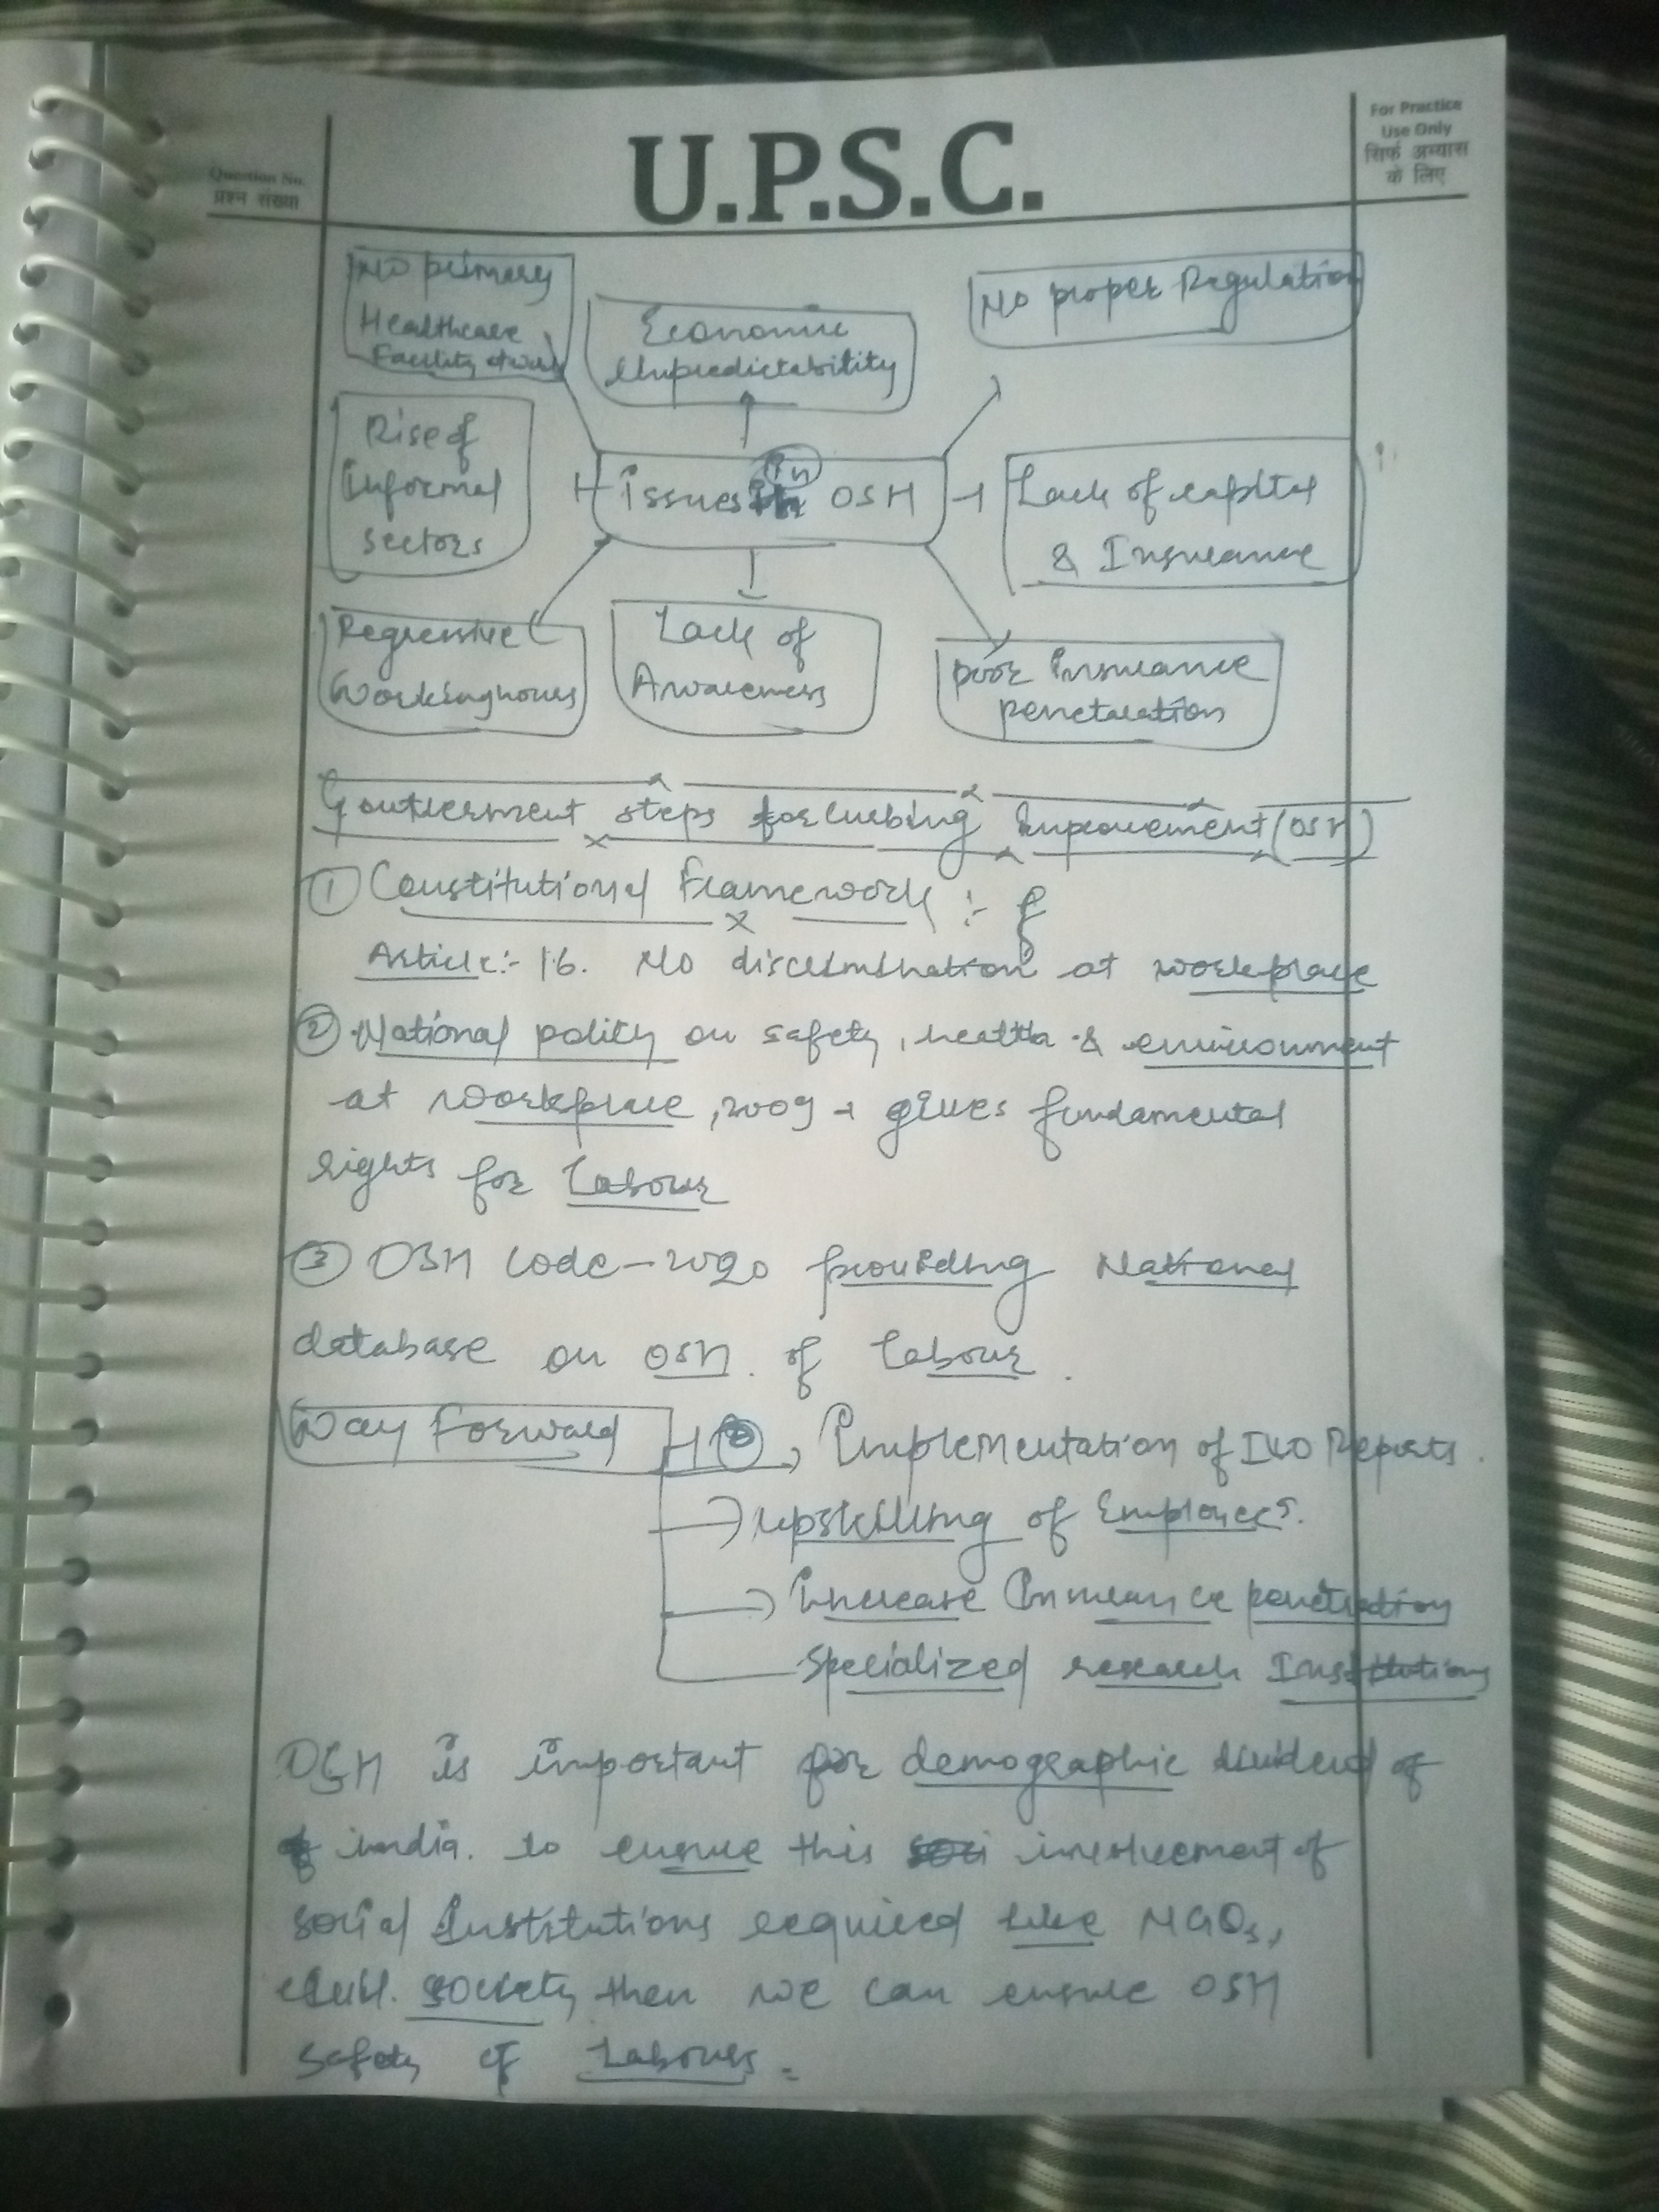 Question No.
प्रश्न संख्या
U.P.S.C.
For Practice
Use Only
सिर्फ अभ्यास
के लिए
No primary
Healthcare
Facility at
Economic
Unpredictability
No proper Regulation
Rise of
Informal
sectors
issues in OSH
Lack of capital
& Insurance
Regressive
Working hours
Lack of
Awareness
poor Insurance
penetration
steps for curbing Improvement (OSH)
① Constitutional Framework :-
Article:- 16. No discrimination at workplace
② National policy on safety, health & environment
at workplace, 2009 → gives fundamental
rights for Labour
③ OSH code - 2020 providing National
database on OSH of labour.
Way Forward
Implementation of ILO Reports.
→ upskilling of Employees.
→ Increase Insurance penetration
Specialized research Institutions
OSH is important for demographic dividend of
india. to ensure this involvement of
social Institutions required like NGOs,
civil. society, then we can ensure OSH
safety of Labours.